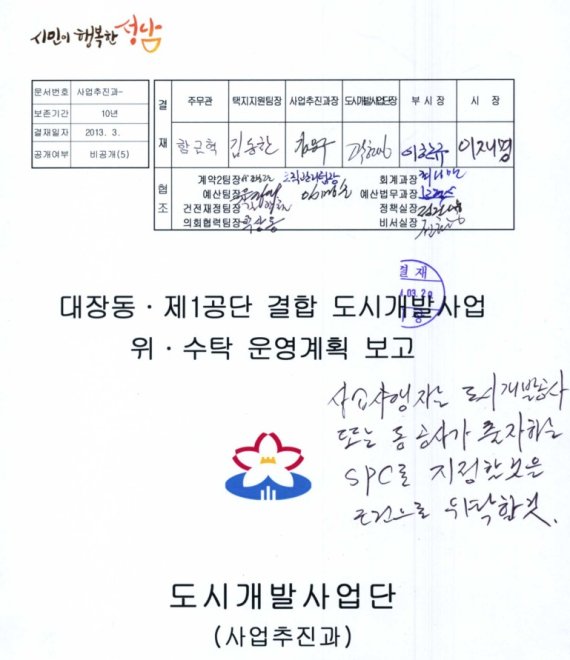 시민이 행복한 성남
문서번호 사업추진과-
보존기간 10년
결재일자 2013. 3.
공개여부 비공개(5)
결재
주무관 택지지원팀장 사업추진과장 도시개발사업단장 부시장 시 장
함근혁 김승한 이재명
협조
계약2팀장 회계과장
예산팀장 예산법무과장
건전재정팀장 정책실장
의회협력팀장 비서실장
결 재
대장동·제1공단 결합 도시개발사업
위·수탁 운영계획 보고
사업시행자는 도시개발공사
또는 동 공사가 출자하는
SPC로 지정할 것을
조건으로 위탁할 것.
도시개발사업단
(사업추진과)